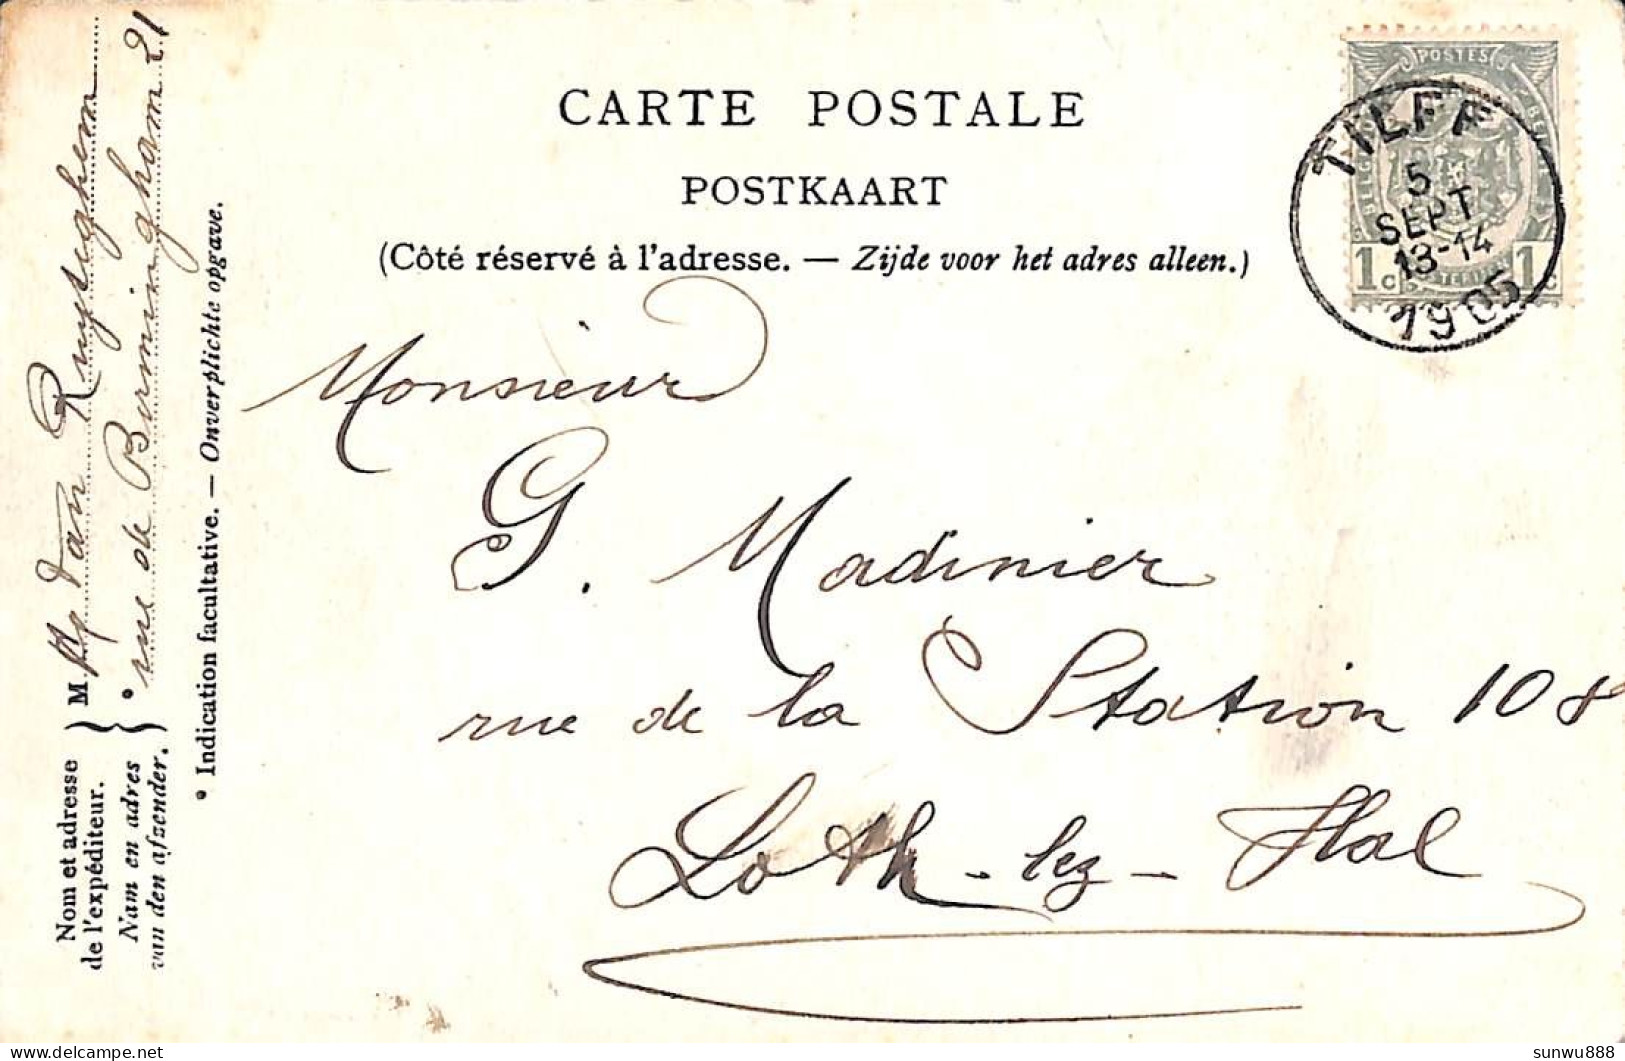 CARTE POSTALE
POSTKAART
(Côté réservé à l'adresse. — Zijde voor het adres alleen.)
POSTES
1 c 1 c
TILFF
5
SEPT
13-14
1905
Monsieur
G. Madinier
rue de la Station 108
Loth-lez-Hal
Nom et adresse
de l'expéditeur.
Nam en adres
van den afzender.
M. Van Ruyseghem
* rue de Birmingham 21
* Indication facultative. — Onverplichte opgave.
sunwu888